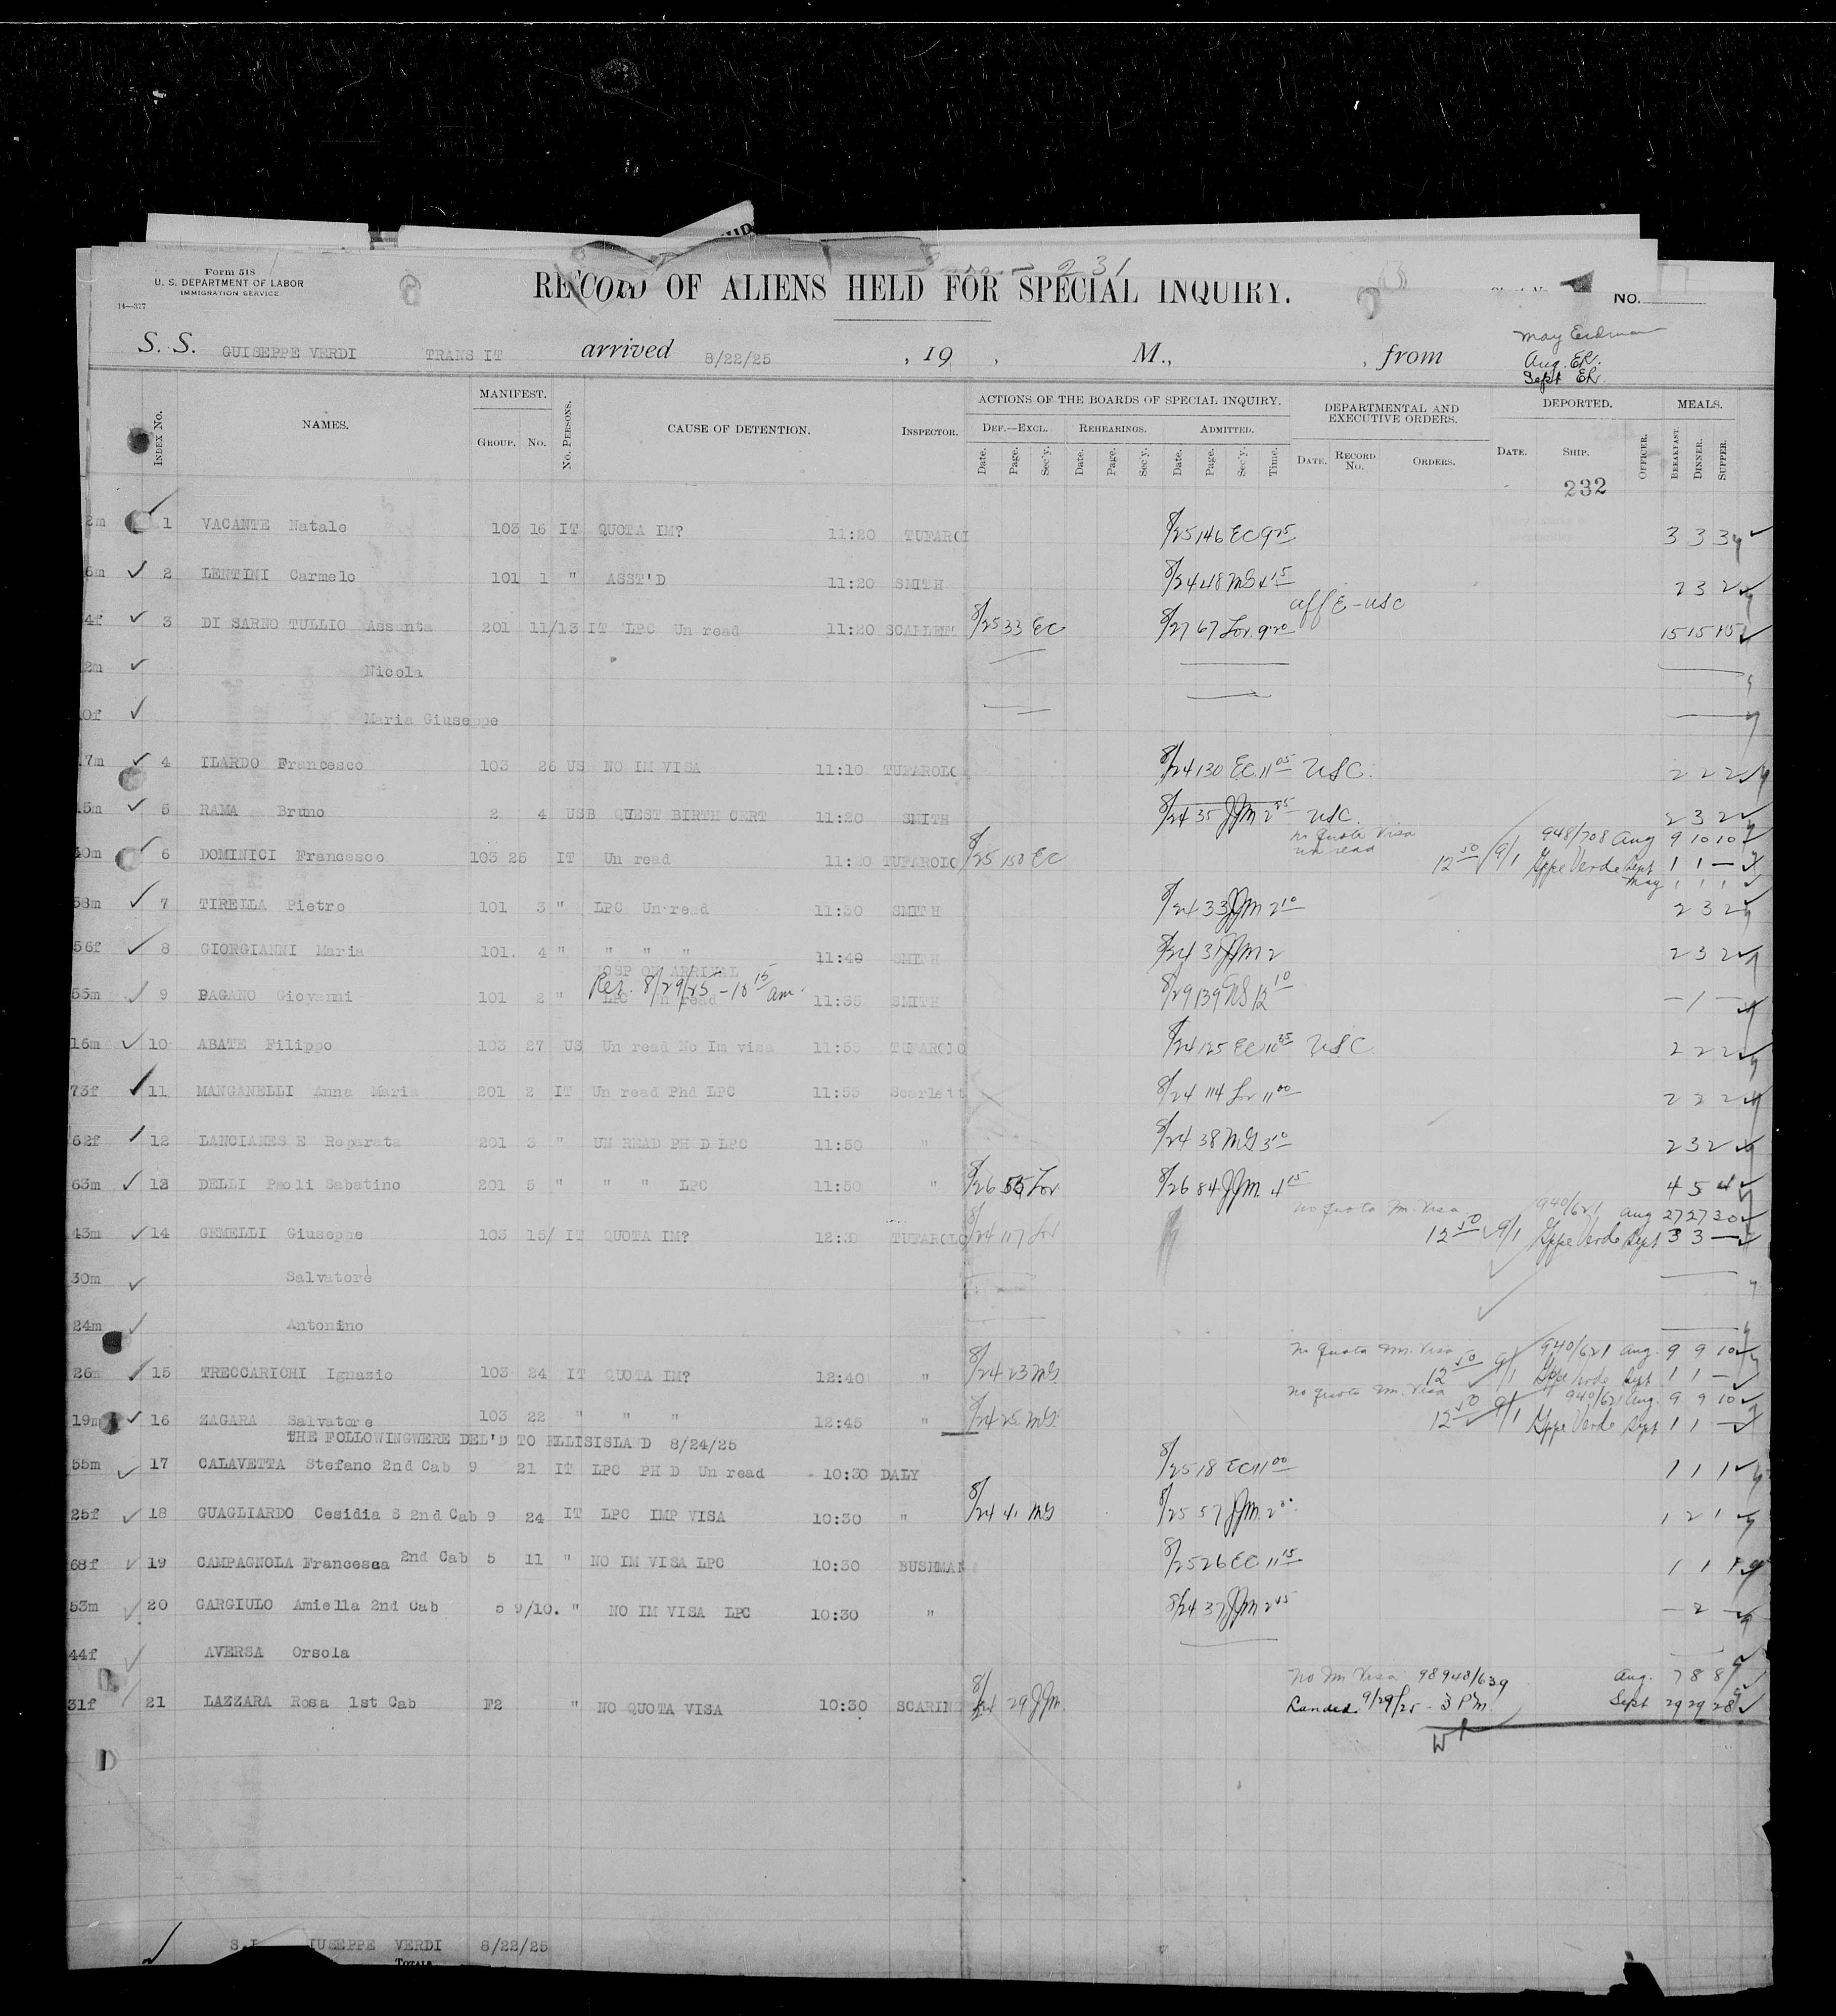 231
Form 518
U. S. DEPARTMENT OF LABOR
IMMIGRATION SERVICE
14—377
RECORD OF ALIENS HELD FOR SPECIAL INQUIRY.
NO.
S. S. GUISEPPE VERDI TRANS IT arrived 8/22/25 , 19 , M., , from
May Erdman
Aug. ER.
Sept ER
INDEX No. NAMES. MANIFEST. GROUP. No. No. PERSONS. CAUSE OF DETENTION. INSPECTOR. ACTIONS OF THE BOARDS OF SPECIAL INQUIRY. DEF.—EXCL. Date. Page. Sec'y. REHEARINGS. Date. Page. Sec'y. ADMITTED. Date. Page. Sec'y. Time. DEPARTMENTAL AND EXECUTIVE ORDERS. DATE. RECORD No. ORDERS. DEPORTED. DATE. SHIP. OFFICER. MEALS. BREAKFAST. DINNER. SUPPER.
232
2m 1 VACANTE Natale 103 16 IT QUOTA IM? 11:20 TUFAROL 8/25 146 EC 9 25 3 3 3
6m 2 LENTINI Carmelo 101 1 " ASST'D 11:20 SMITH 8/24 48 MG 4 15 2 3 2
aff E - USC
4f 3 DI SARNO TULLIO Assunta 201 11/13 IT LPC Un read 11:20 SCARLET 8/25 33 EC 8/27 67 Lor. 9 20 15 15 15
2m Nicola
0f Maria Giuseppe
7m 4 ILARDO Francesco 103 26 US NO IM VISA 11:10 TUFAROLO 8/24 130 EC 11 05 USC. 2 2 2
5m 5 RAMA Bruno 2 4 USB QUEST BIRTH CERT 11:20 SMITH 8/24 35 JJM 2 25 USC. 2 3 2
no Quota Visa 948/708 Aug 9 10 10
un read
40m 6 DOMINICI Francesco 103 25 IT Un read 11:20 TUFAROLO 8/25 150 EC 12 50 9/1 Gppe Verde Sept 1 1 —
May 1 1 1
58m 7 TIRELLA Pietro 101 3 " LPC Un read 11:30 SMITH 8/24 33 JJM 2 10 2 3 2
56f 8 GIORGIANNI Maria 101. 4 " " " " 11:40 SMITH 8/24 31 JJM 2 2 3 2
HOSP ON ARRIVAL
Rel. 8/29/25 - 10 15 am.
55m 9 PAGANO Giovanni 101 2 " LPC Un read 11:35 SMITH 8/29 139 NS 12 10 — 1 —
16m 10 ABATE Filippo 103 27 US Un read No Im visa 11:55 TUFAROLO 8/24 125 EC 10 35 USC 2 2 2
73f 11 MANGANELLI Anna Maria 201 2 IT Un read Phd LPC 11:55 Scarlett 8/24 114 Lor 11 00 2 2 2
62f 12 LANCIANES E Reparata 201 3 " UN READ PH D LPC 11:50 " 8/24 38 MG 3 10 2 3 2
63m 13 DELLI Paoli Sabatino 201 5 " " " LPC 11:50 " 8/26 56 Lor 8/26 84 JJM. 4 15 4 5 4
no Quota Im. Visa 940/621 Aug 27 27 30
43m 14 GEMELLI Giuseppe 103 15/ IT QUOTA IM? 12:30 TUFAROLO 8/24 117 Lor 12 50 9/1 Gppe Verde Sept 3 3 —
30m Salvatore
24m Antonino
no Quota Im. Visa 940/621 Aug. 9 9 10
26m 15 TRECCARICHI Ignazio 103 24 IT QUOTA IM? 12:40 " 8/24 23 MG. 12 50 9/1 Gppe Verde Sept 1 1 —
no Quota Im. Visa 940/621 Aug. 9 9 10
19m 16 ZAGARA Salvatore 103 22 " " " 12:45 " 8/24 25 MG. 12 50 9/1 Gppe Verde Sept 1 1 —
THE FOLLOWINGWERE DEL'D TO ELLISISLAND 8/24/25
55m 17 CALAVETTA Stefano 2nd Cab 9 21 IT LPC PH D Un read 10:30 DALY 8/25 18 EC 11 00 1 1 1
25f 18 GUAGLIARDO Cesidia S 2nd Cab 9 24 IT LPC IMP VISA 10:30 " 8/24 41 MG 8/25 57 JJM. 2 1 2 1
68f 19 CAMPAGNOLA Francesca 2nd Cab 5 11 " NO IM VISA LPC 10:30 BUSHMAN 8/25 26 EC 11 15 1 1 1
53m 20 GARGIULO Amiella 2nd Cab 5 9/10. " NO IM VISA LPC 10:30 " 8/24 37 JJM 2 45 — 2 —
44f AVERSA Orsola
No Im Visa 98948/639 Aug. 7 8 8
31f 21 LAZZARA Rosa 1st Cab F2 " NO QUOTA VISA 10:30 SCARIN 8/24 29 JJM. Landed 9/29/25 - 3 PM. Sept 29 29 28
S.I. IUSEPPE VERDI 8/22/25
TOTALS